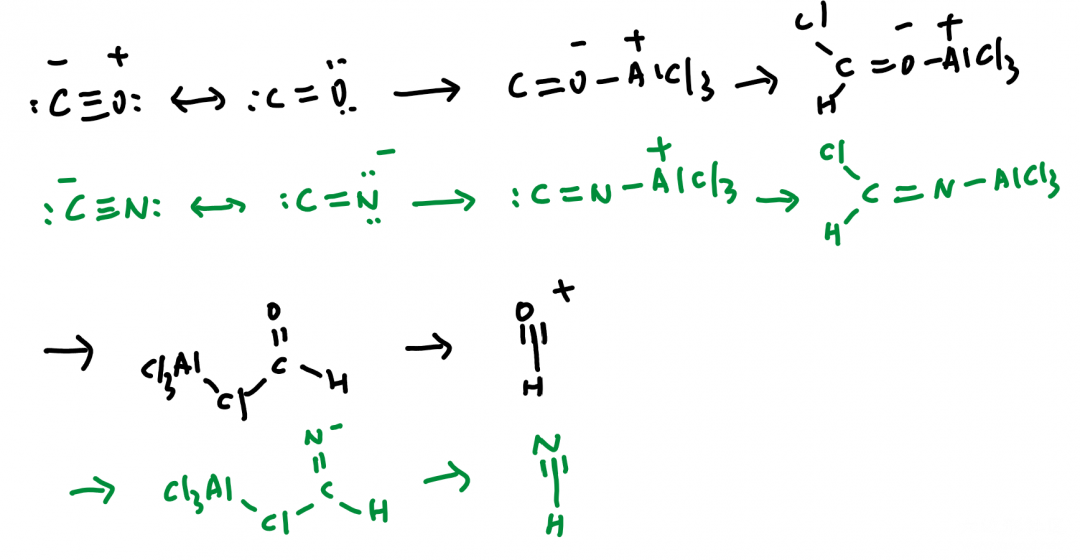 :C̄≡O⁺: ↔ :C=Ö: → C=O⁻–Al⁺Cl3 → Cl H C=O⁻–Al⁺Cl3
:C̄≡N: ↔ :C=N̈:⁻ → :C=N–Al⁺Cl3 → Cl H C=N–AlCl3
→ Cl3Al Cl C O H → O⁺ H
→ Cl3Al Cl C N⁻ H → N H